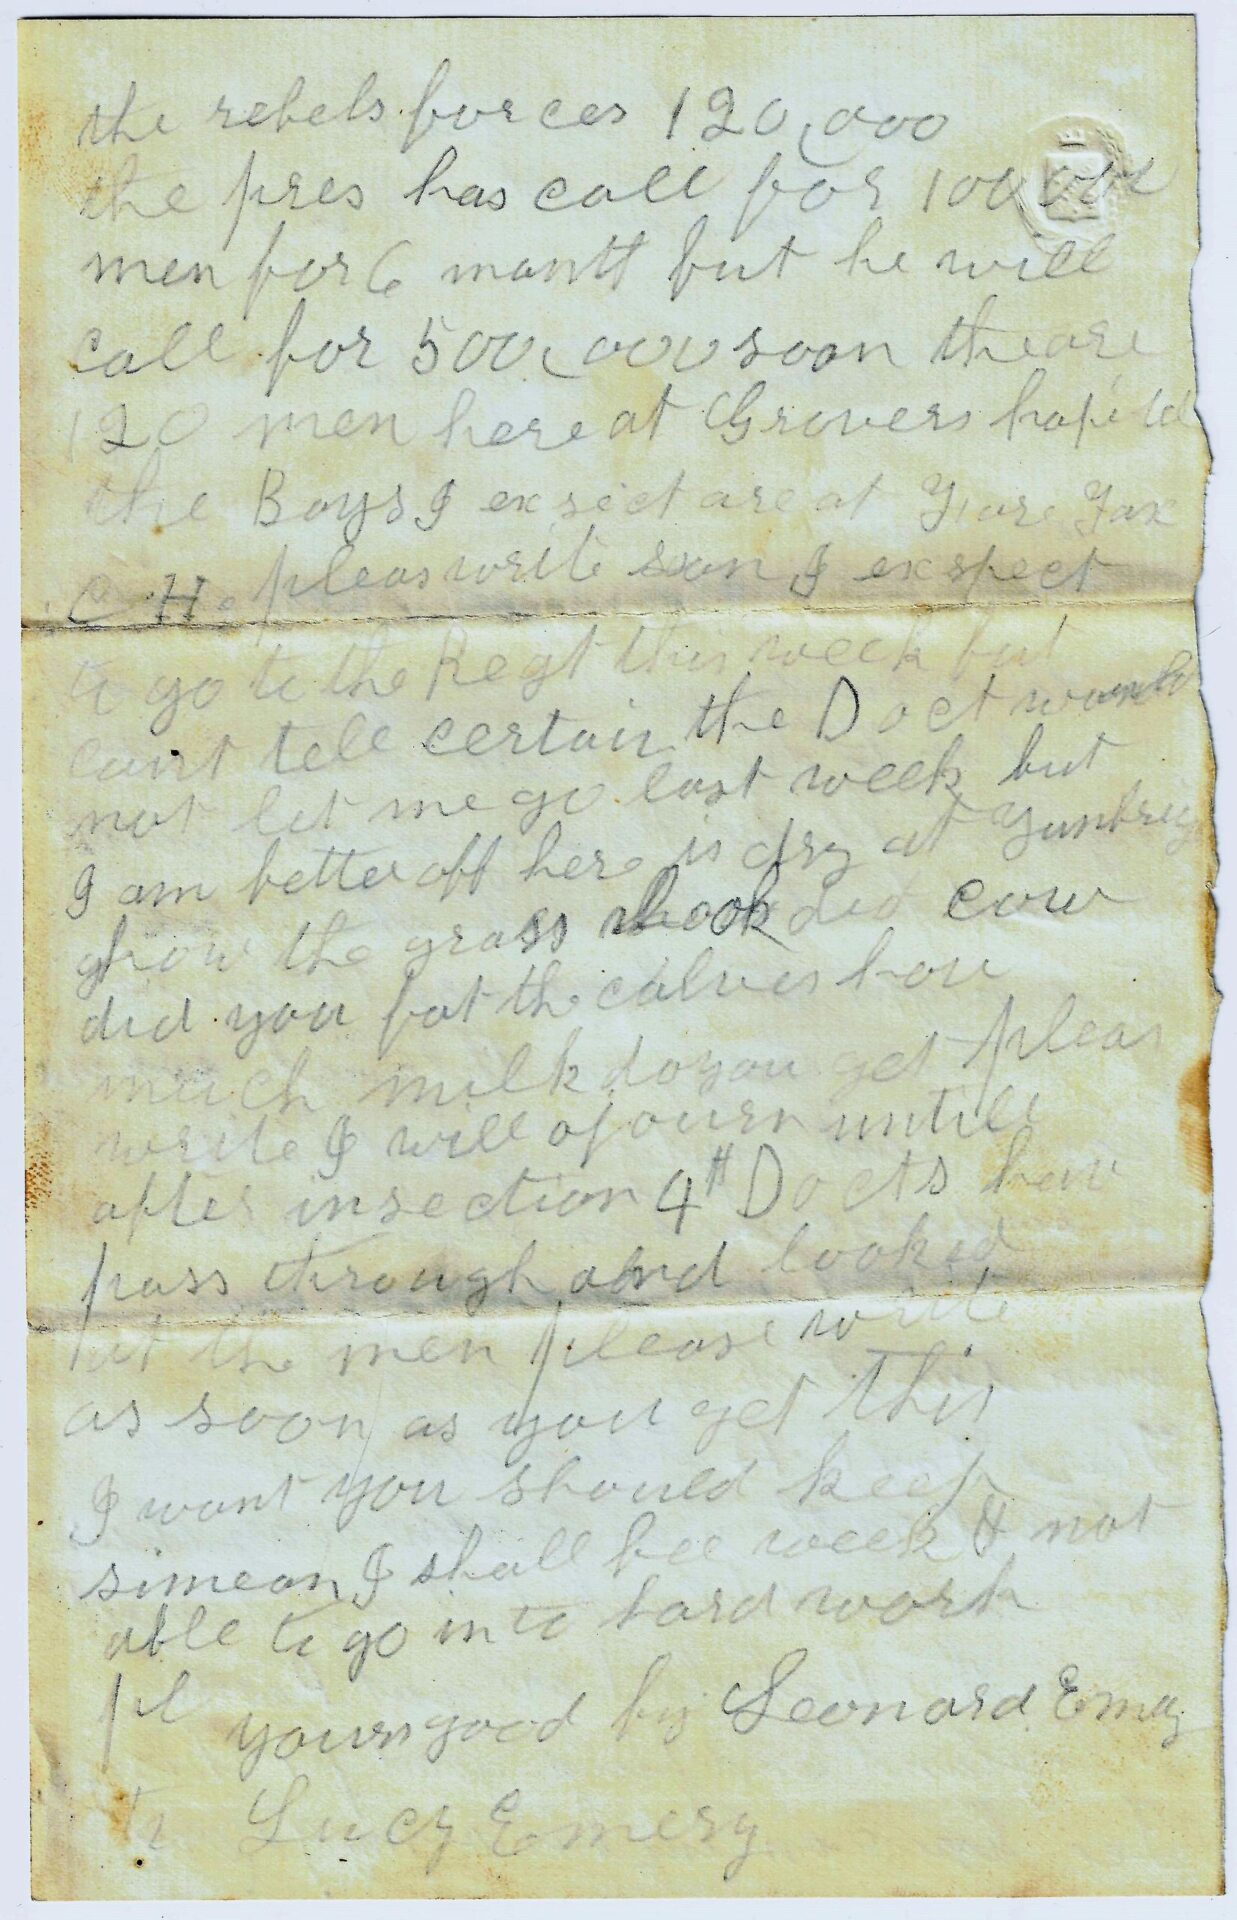 the rebels forces 120,000
the pres has call for 100,000
men for 6 montt but he will
call for 500,000 soon theare
120 men here at Grovers
the Boys I exsect are at Fare Fax
C H. pleas write soon I exspect
to go to the Regt this week but
cant tell certain the Doct
not let me go last week but
I am better off here is dry at
ghow the grass looks did cow
did you fat the calves how
much milk do you get pleas
write I will ajourn untill
after insection 4tt Docts hav
pass through and looked
at the men please write
as soon as you get this
I want you should keep
simeon I shall bee week & not
able to go in to hard work
yours good by Leonard Emery
to Lucy Emery